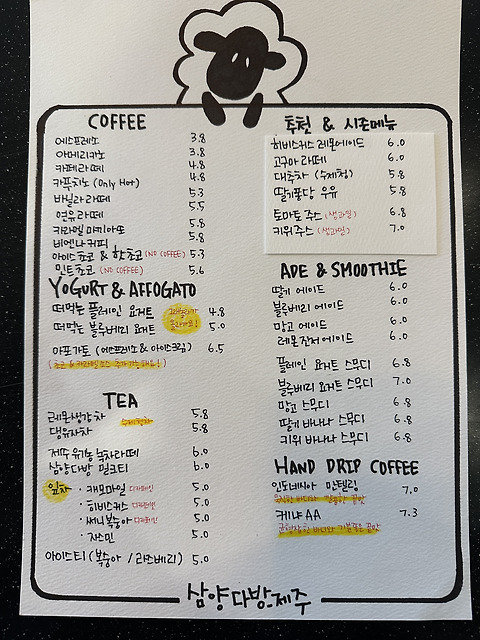 COFFEE
에스프레소 3.8
아메리카노 3.8
카페라떼 4.8
카푸치노 (Only Hot) 4.8
바닐라 라떼 5.3
연유라떼 5.5
카라멜 마키아또 5.8
비엔나커피 5.8
아이스쵸코 & 핫쵸코 (NO COFFEE) 5.3
민트쵸코 (NO COFFEE) 5.6
YOGURT & AFFOGATO
떠먹는 플레인 요거트 4.8
떠먹는 블루베리 요거트 5.0
올라가요!
아포가토 (에스프레소 & 아이스크림) 6.5
TEA
레몬생강차 5.8
댕유자차 5.8
수제청차
제주 유기농 녹차라떼 6.0
삼양다방 밀크티 6.0
잎차
· 캐모마일 디카페인 5.0
· 히비스커스 디카페인 5.0
· 써니복숭아 디카페인 5.0
· 자스민 5.0
아이스티 (복숭아 / 라즈베리) 5.0
추천 & 시즌메뉴
히비스커스 레몬에이드 6.0
고구마 라떼 6.0
대추차 (수제청) 5.8
딸기퐁당 우유 5.8
토마토 주스 (생과일) 6.8
키위주스 (생과일) 7.0
ADE & SMOOTHIE
딸기 에이드 6.0
블루베리 에이드 6.0
망고 에이드 6.0
레몬자몽 에이드 6.0
플레인 요거트 스무디 6.8
블루베리 요거트 스무디 7.0
망고 스무디 6.8
딸기 바나나 스무디 6.8
키위 바나나 스무디 6.8
HAND DRIP COFFEE
인도네시아 만델링 7.0
케냐 AA 7.3
삼양다방_제주